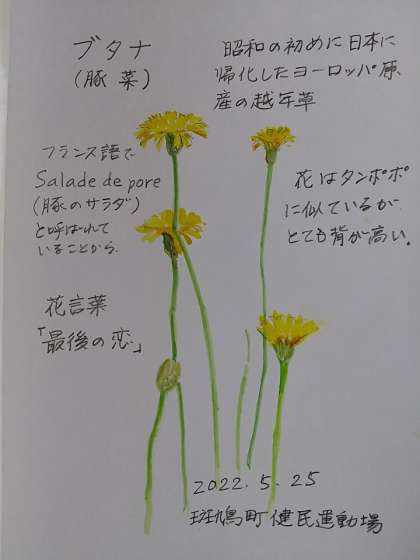 ブタナ
(豚菜)
昭和の初めに日本に
帰化したヨーロッパ原
産の越年草
フランス語で
Salade de pore
(豚のサラダ)
と呼ばれて
いることから
花はタンポポ
に似ているが
とても背が高い。
花言葉
「最後の恋」
2022.5.25
斑鳩町健民運動場